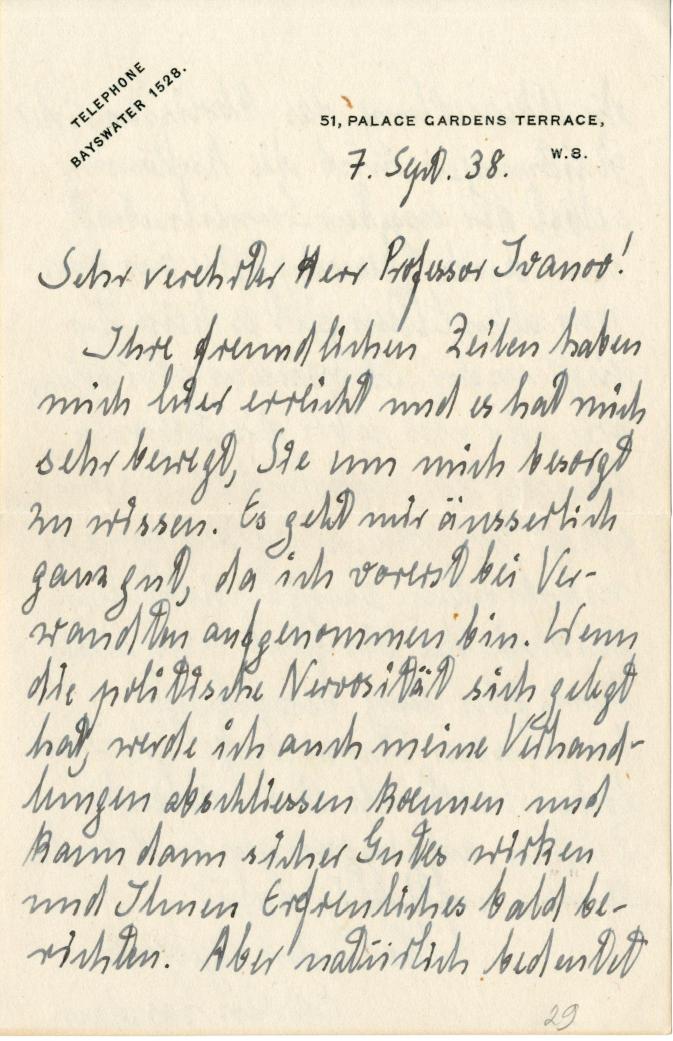 TELEPHONE
BAYSWATER 1528.
51, PALACE GARDENS TERRACE,
W.8.
7. Sept. 38.
Sehr verehrter Herr Professor Ivanov!
Ihre freundlichen Zeilen haben
mich hier erreicht und es hat mich
sehr bewegt, Sie um mich besorgt
zu wissen. Es geht mir äusserlich
ganz gut, da ich vorerst bei Ver-
wandten aufgenommen bin. Wenn
die politische Nervosität sich gelegt
hat, werde ich auch meine Verhand-
lungen abschliessen koennen und
kann dann sicher Gutes wirken
und Ihnen Erfreuliches bald be-
richten. Aber natürlich bedeutet
29